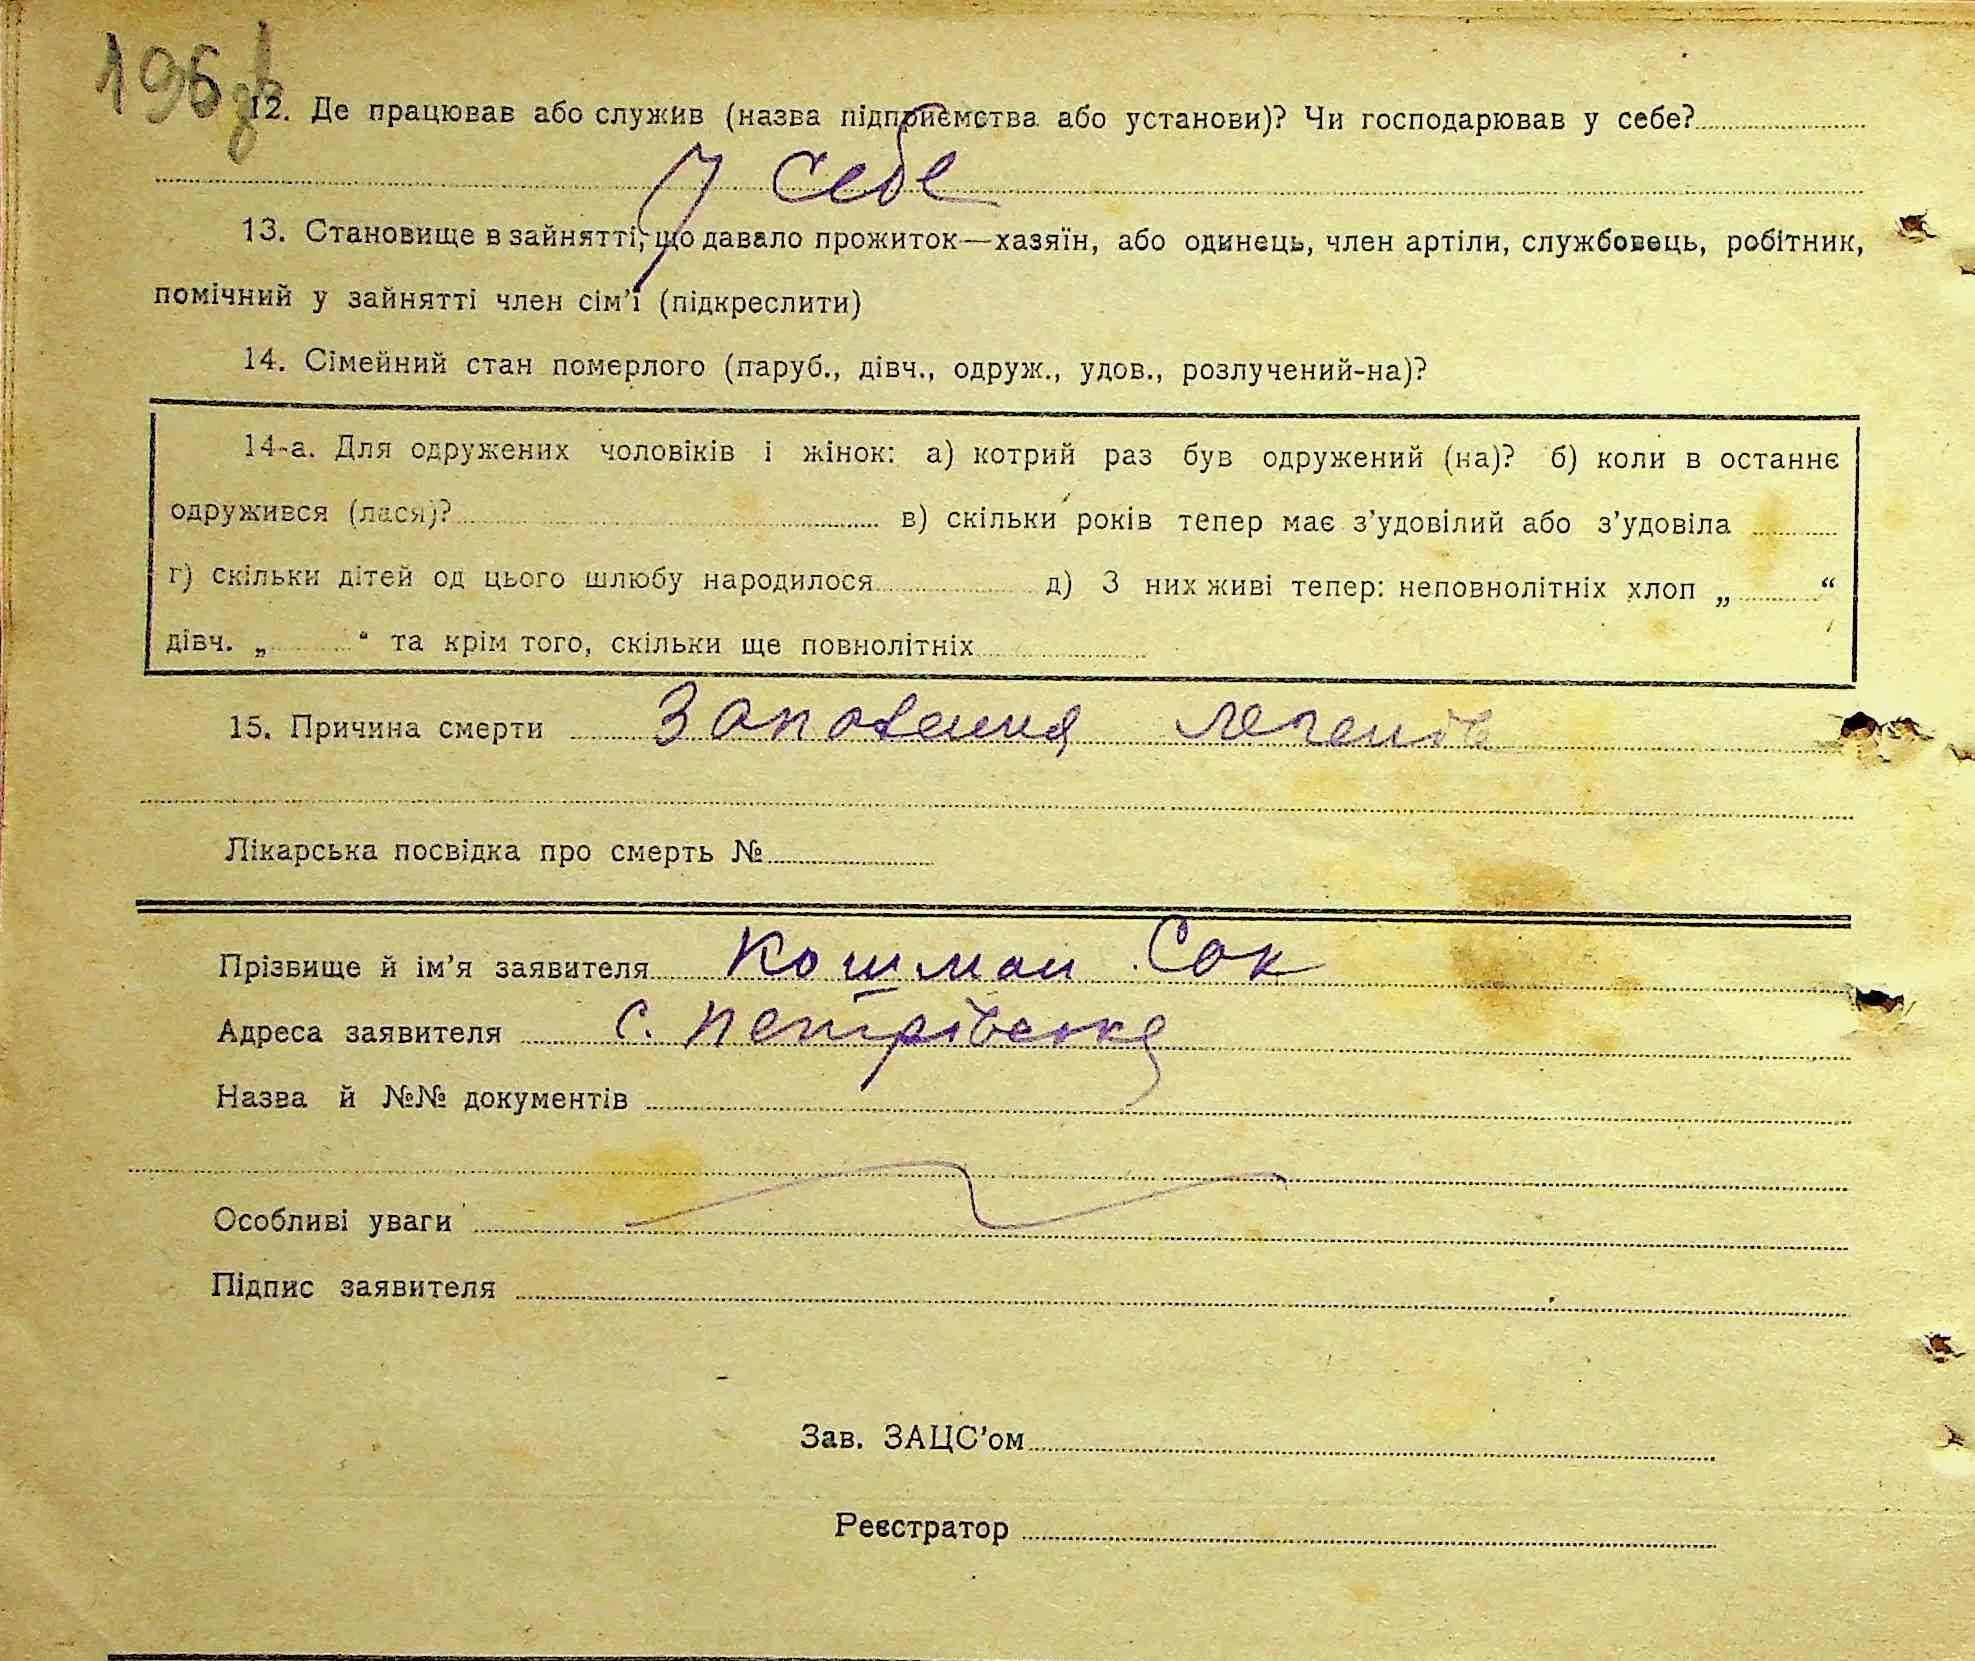 196 зв
12. Де працював або служив (назва підприємства або установи)? Чи господарював у себе?
У себе
13. Становище в зайнятті, що давало прожиток—хазяїн, або одинець, член артіли, службовець, робітник,
помічний у зайнятті член сім'ї (підкреслити)
14. Сімейний стан померлого (паруб., дівч., одруж., удов., розлучений-на)?
14-а. Для одружених чоловіків і жінок: а) котрий раз був одружений (на)? б) коли в останнє
одружився (лася)? в) скільки років тепер має з'удовілий або з'удовіла
г) скільки дітей од цього шлюбу народилося д) З них живі тепер: неповнолітніх хлоп „ “
дівч. „ “ та крім того, скільки ще повнолітніх
15. Причина смерти Запалення легенів
Лікарська посвідка про смерть №
Прізвище й ім'я заявителя Кошман Сак
Адреса заявителя с. Петрівська
Назва й №№ документів
Особливі уваги
Підпис заявителя
Зав. ЗАЦС'ом
Реєстратор